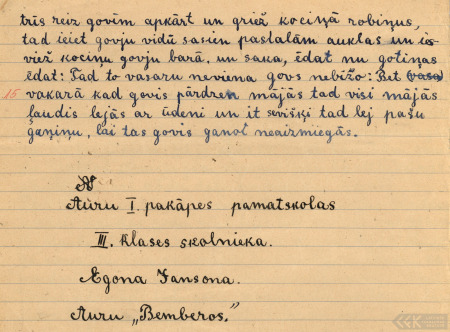 trīs reiz govīm apkārt un griež kociņā robiņus,
tad ieiet govju vidū sasien pastalām auklas un ie
viež kociņu govju barā, un saka, ēdat nu gotiņas
ēdat: Tad to vasaru neviena govs nebižo: Bet
15 vakarā kad govis pārdzen mājās tad visi mājās
ļaudis lejās ar ūdeni un it sevišķi tad lej pašu
ganiņu, lai tas govis ganot neaizmiegās.
Auru I. pakāpes pamatskolas
III. klases skolnieka.
Egona Jansona.
Auru „Bemberos."